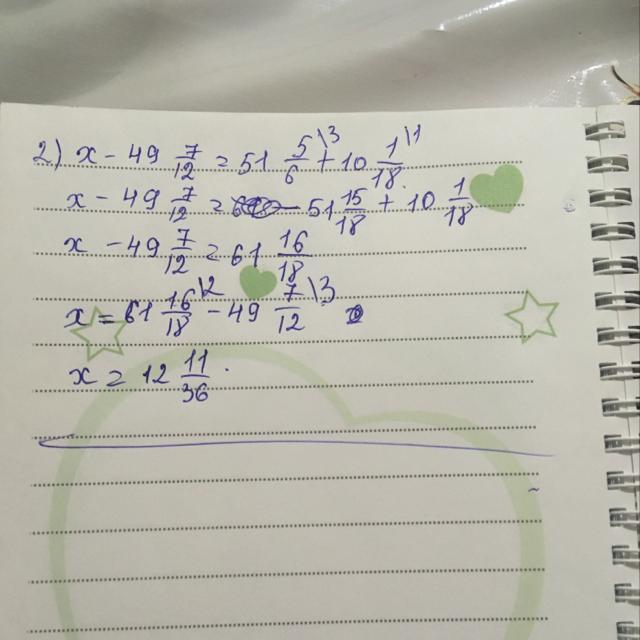 2) x - 49 7/12 = 51 5/6 \3 + 10 1/18 \1
x - 49 7/12 = 51 15/18 + 10 1/18
x - 49 7/12 = 61 16/18
x = 61 16/18 \2 - 49 7/12 \3
x = 12 11/36.